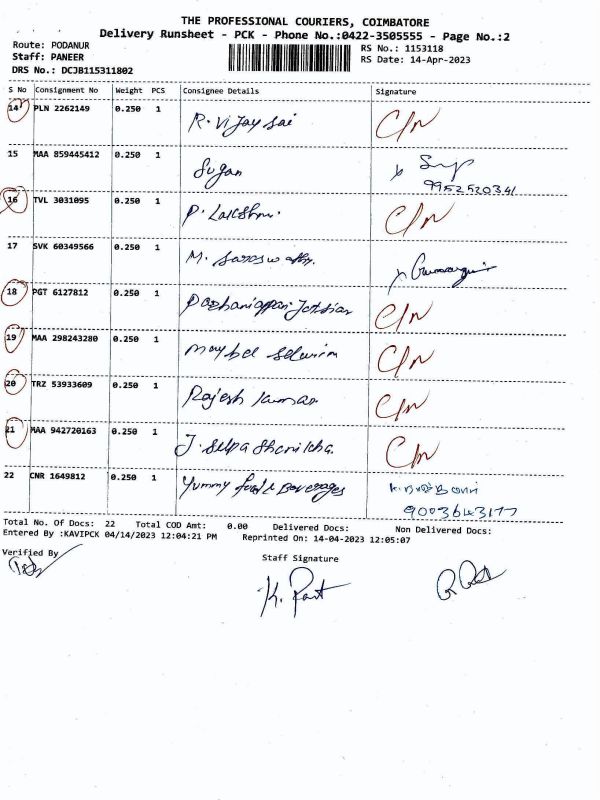 THE PROFESSIONAL COURIERS, COIMBATORE
Delivery Runsheet - PCK - Phone No.:0422-3505555 - Page No.:2
Route: PODANUR
Staff: PANEER
DRS No.: DCJB115311802
RS No.: 1153118
RS Date: 14-Apr-2023
S No Consignment No Weight PCS Consignee Details Signature
14 PLN 2262149 0.250 1 R. Vijay Sai C/N
15 MAA 859445412 0.250 1 Sugan
9952520341
16 TVL 3031095 0.250 1 P. Lakshmi. C/N
17 SVK 60349566 0.250 1 M.
18 PGT 6127812 0.250 1 C/N
19 MAA 298243280 0.250 1 C/N
20 TRZ 53933609 0.250 1 Rajesh Kumar C/N
21 MAA 942720163 0.250 1 J. C/N
22 CNR 1649812 0.250 1 Yummy food & Beverages
9003643177
Total No. Of Docs: 22 Total COD Amt: 0.00 Delivered Docs: Non Delivered Docs:
Entered By :KAVIPCK 04/14/2023 12:04:21 PM Reprinted On: 14-04-2023 12:05:07
Verified By
Staff Signature